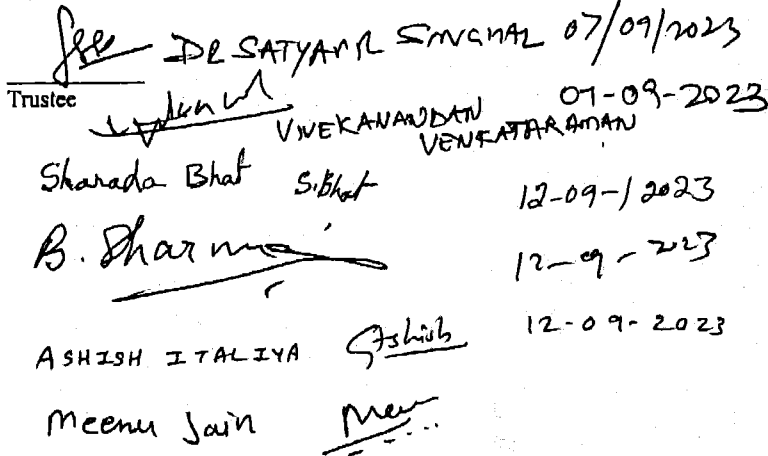 DR SATYAVIR SINGHAL 07/09/2023
Trustee
07-09-2023
VIVEKANANDAN
VENKATARAMAN
Sharada Bhat S.Bhat 12-09-/2023
B. Sharma 12-09-2023
ASHISH ITALIYA Ashish 12-09-2023
Meenu Jain